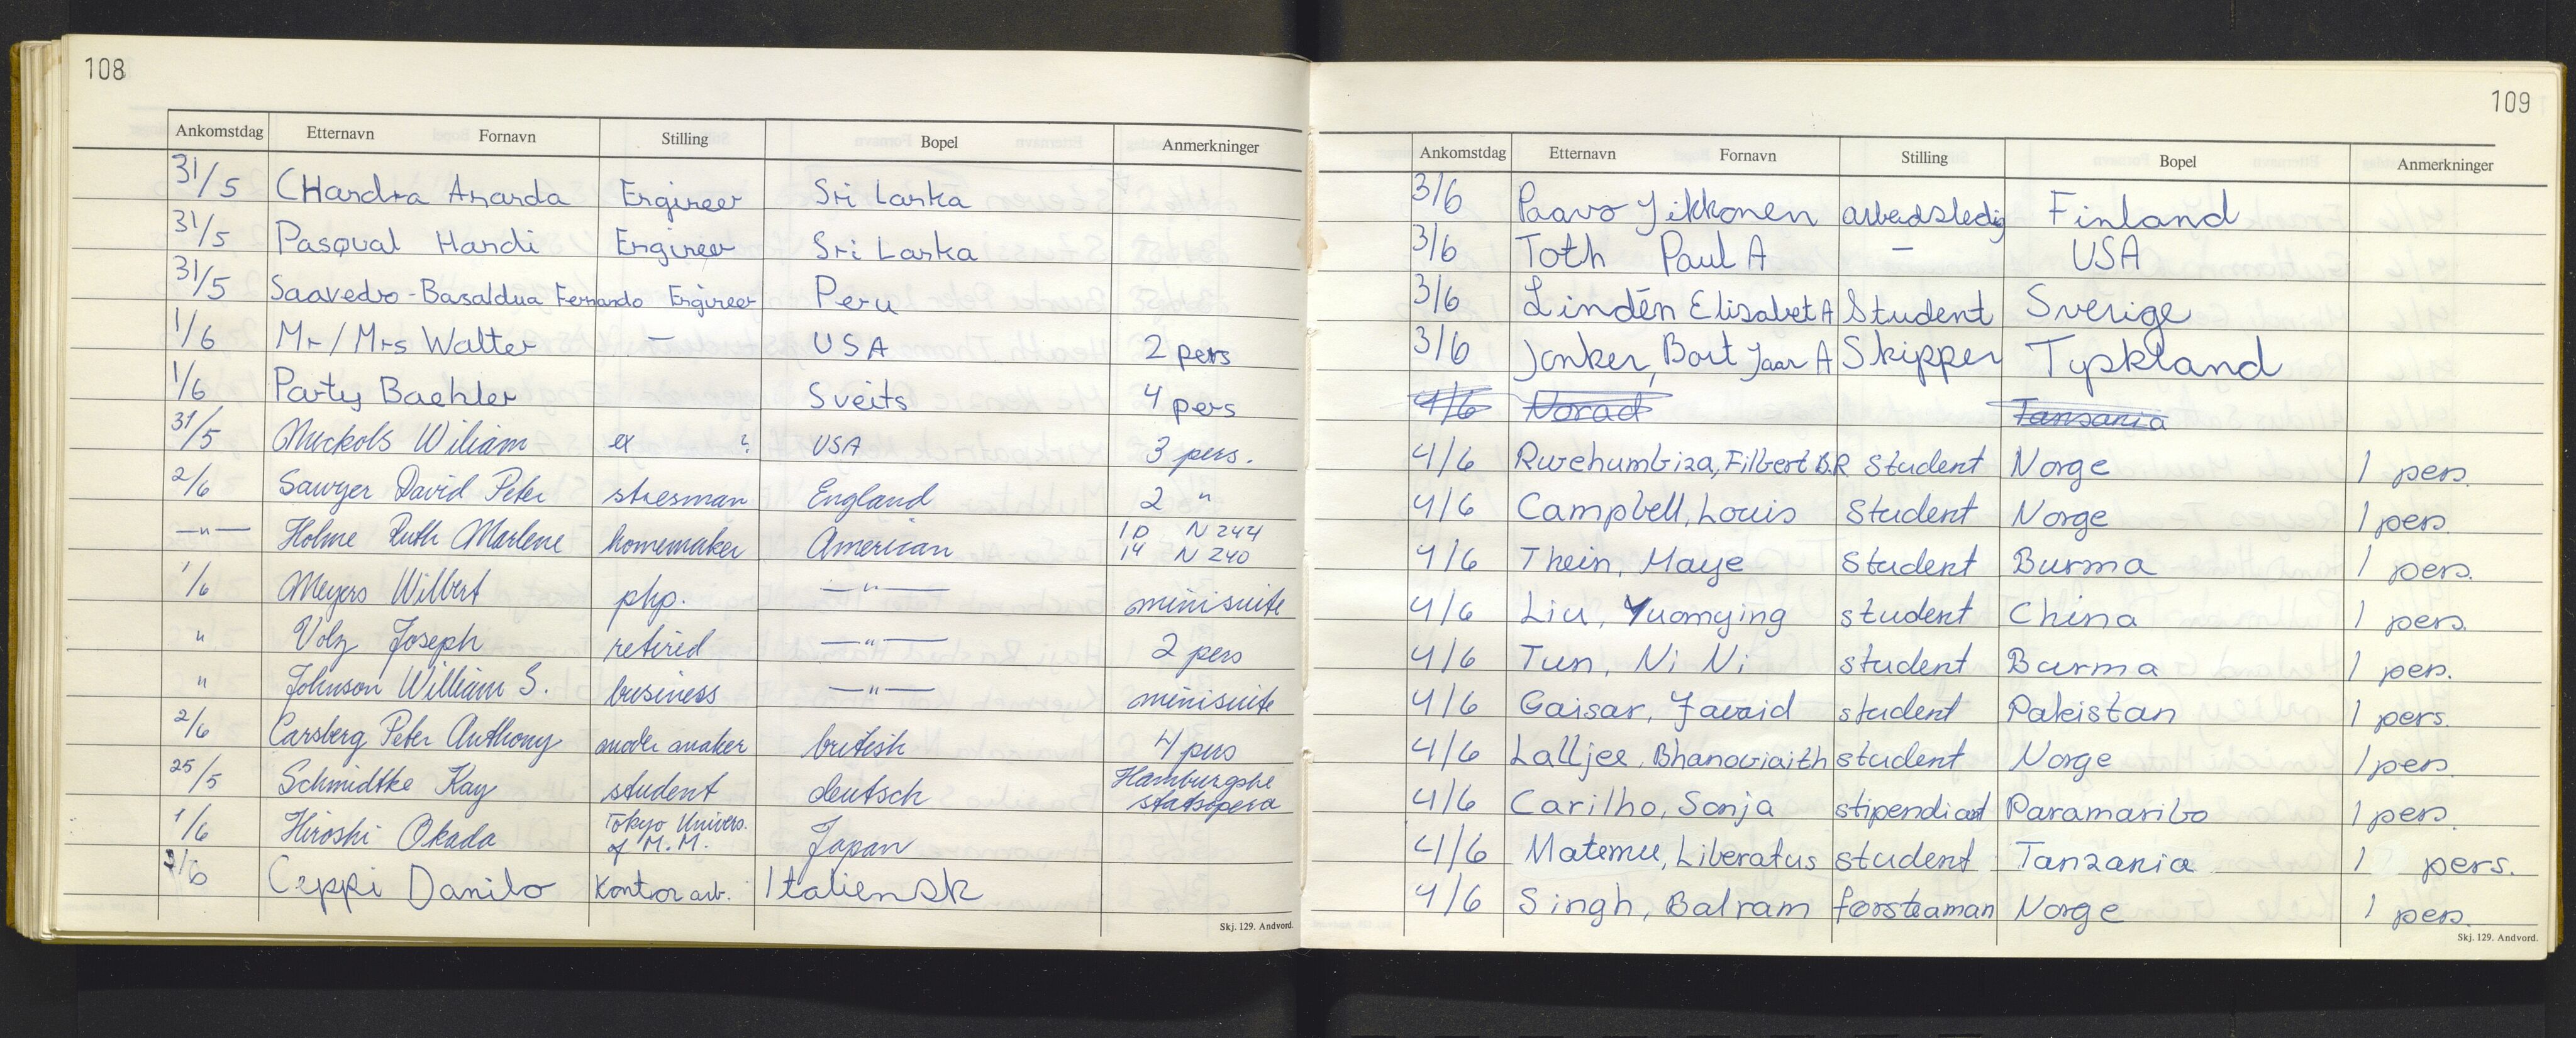 108
Ankomstdag Etternavn Fornavn Stilling Bopel Anmerkninger
31/5 CHandra Ananda Engineer Sri Lanka
31/5 Pasqual Handi Engineer Sri Lanka
31/5 Saavedro-Basaldua Fernando Engineer Peru
1/6 Mr/Mrs Walter — USA 2 pers
1/6 Party Baehler Sveits 4 pers
31/5 Muckols Wiliam ex ? USA 3 pers.
2/6 Sawyer David Peter England 2 "
—"— Holme Ruth Marlene homemaker American 1D N 244
14 N 240
1/6 Meyers Wilbert php. —"— minisuite
" Volz Joseph retired —"— 2 pers
" Johnson William S. business —"— minisuite
2/6 Carsberg Peter Anthony british 4 pers
25/5 Schmidtke Kay student deutsch Hamburgske
statsopera
1/6 Hiroshi Okada Tokyo Univers. Japan
of M.M.
/6 Ceppi Danilo Kontor arb. Italiensk
Skj. 129. Andvord.
109
Ankomstdag Etternavn Fornavn Stilling Bopel Anmerkninger
3/6 Paavo Jikkonen arbeidsledig Finland
3/6 Toth Paul A — USA
3/6 Lindén Elisabet A Student Sverige
3/6 Jonker, Bart Jaar A Skipper Tyskland
4/6 Norad Tansania
4/6 Rwehumbiza, Filbert B.R Student Norge 1 pers.
4/6 Campbell, Louis Student Norge 1 pers.
4/6 Thein, Maye Student Burma 1 pers.
4/6 Liu, Yuomying student China 1 pers.
4/6 Tun, Ni Ni student Burma 1 pers.
4/6 Gaisar, Javaid student Pakistan 1 pers.
4/6 Lalljee, Bhanoviaith student Norge 1 pers.
4/6 Carilho, Sonja stipendiat Paramaribo 1 pers.
4/6 Matemu, Liberatus student Tanzania 1 pers.
4/6 Singh, Balram førsteaman Norge 1 pers.
Skj. 129. Andvord.